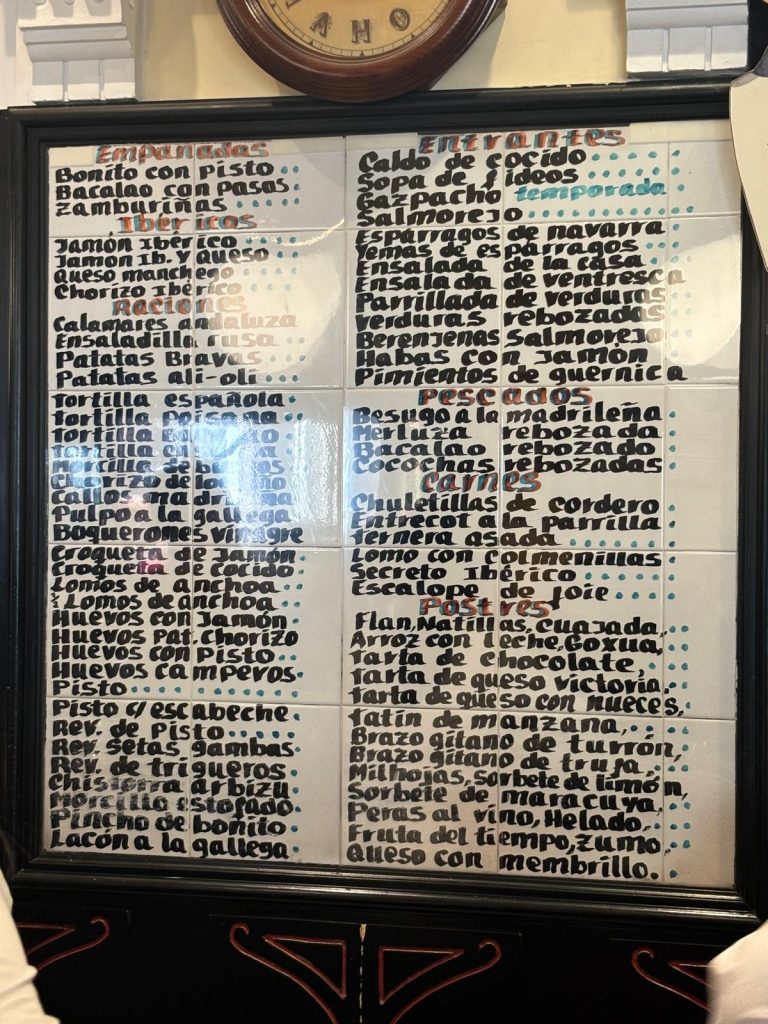 Empanadas
Bonito con pisto
Bacalao con pasas
Zamburiñas
Ibéricos
Jamón Ibérico
Jamon Ib. y queso
Queso manchego
Chorizo Ibérico
Raciones
Calamares andaluza
Ensaladilla rusa
Patatas Bravas
Patatas ali-oli
Tortilla española
Tortilla paisana
Tortilla
Tortilla
Morcilla de
Chorizo de
Callos madrileña
Pulpo a la gallega
Boquerones vinagre
Croqueta de Jamón
Croqueta de cocido
Lomos de anchoa
½ Lomos de anchoa
Huevos con Jamón
Huevos Pat. Chorizo
Huevos con Pisto
Huevos camperos
Pisto
Pisto c/ escabeche
Rev. de Pisto
Rev. Setas gambas
Rev. de trigueros
Chistorra arbizu
Morcillo estofado
Pincho de boñito
Lacón a la gallega
Entrantes
Caldo de cocido
Sopa de fideos
Gazpacho temporada
Salmorejo
Espárragos de navarra
Yemas de espárragos
Ensalada de la casa
Ensalada de ventresca
Parrillada de verduras
Verduras rebozadas
Berenjenas Salmorejo
Habas con Jamón
Pimientos de guernica
Pescados
Besugo a la madrileña
Merluza rebozada
Bacalao rebozado
Cocochas rebozadas
Carnes
Chuletillas de cordero
Entrecot a la parrilla
Ternera asada
Lomo con colmenillas
Secreto Ibérico
Escalope de foie
Postres
Flan, Natillas, Cuajada,
Arroz con leche, Goxua,
Tarta de chocolate,
Tarta de queso victoria.
Tarta de queso con nueces,
Tatin de manzana,
Brazo gitano de turrón,
Brazo gitano de trufa,
Milhojas, Sorbete de limón,
Sorbete de maracuya,
Peras al vino, Helado,
Fruta del tiempo, Zumo,
Queso con membrillo.